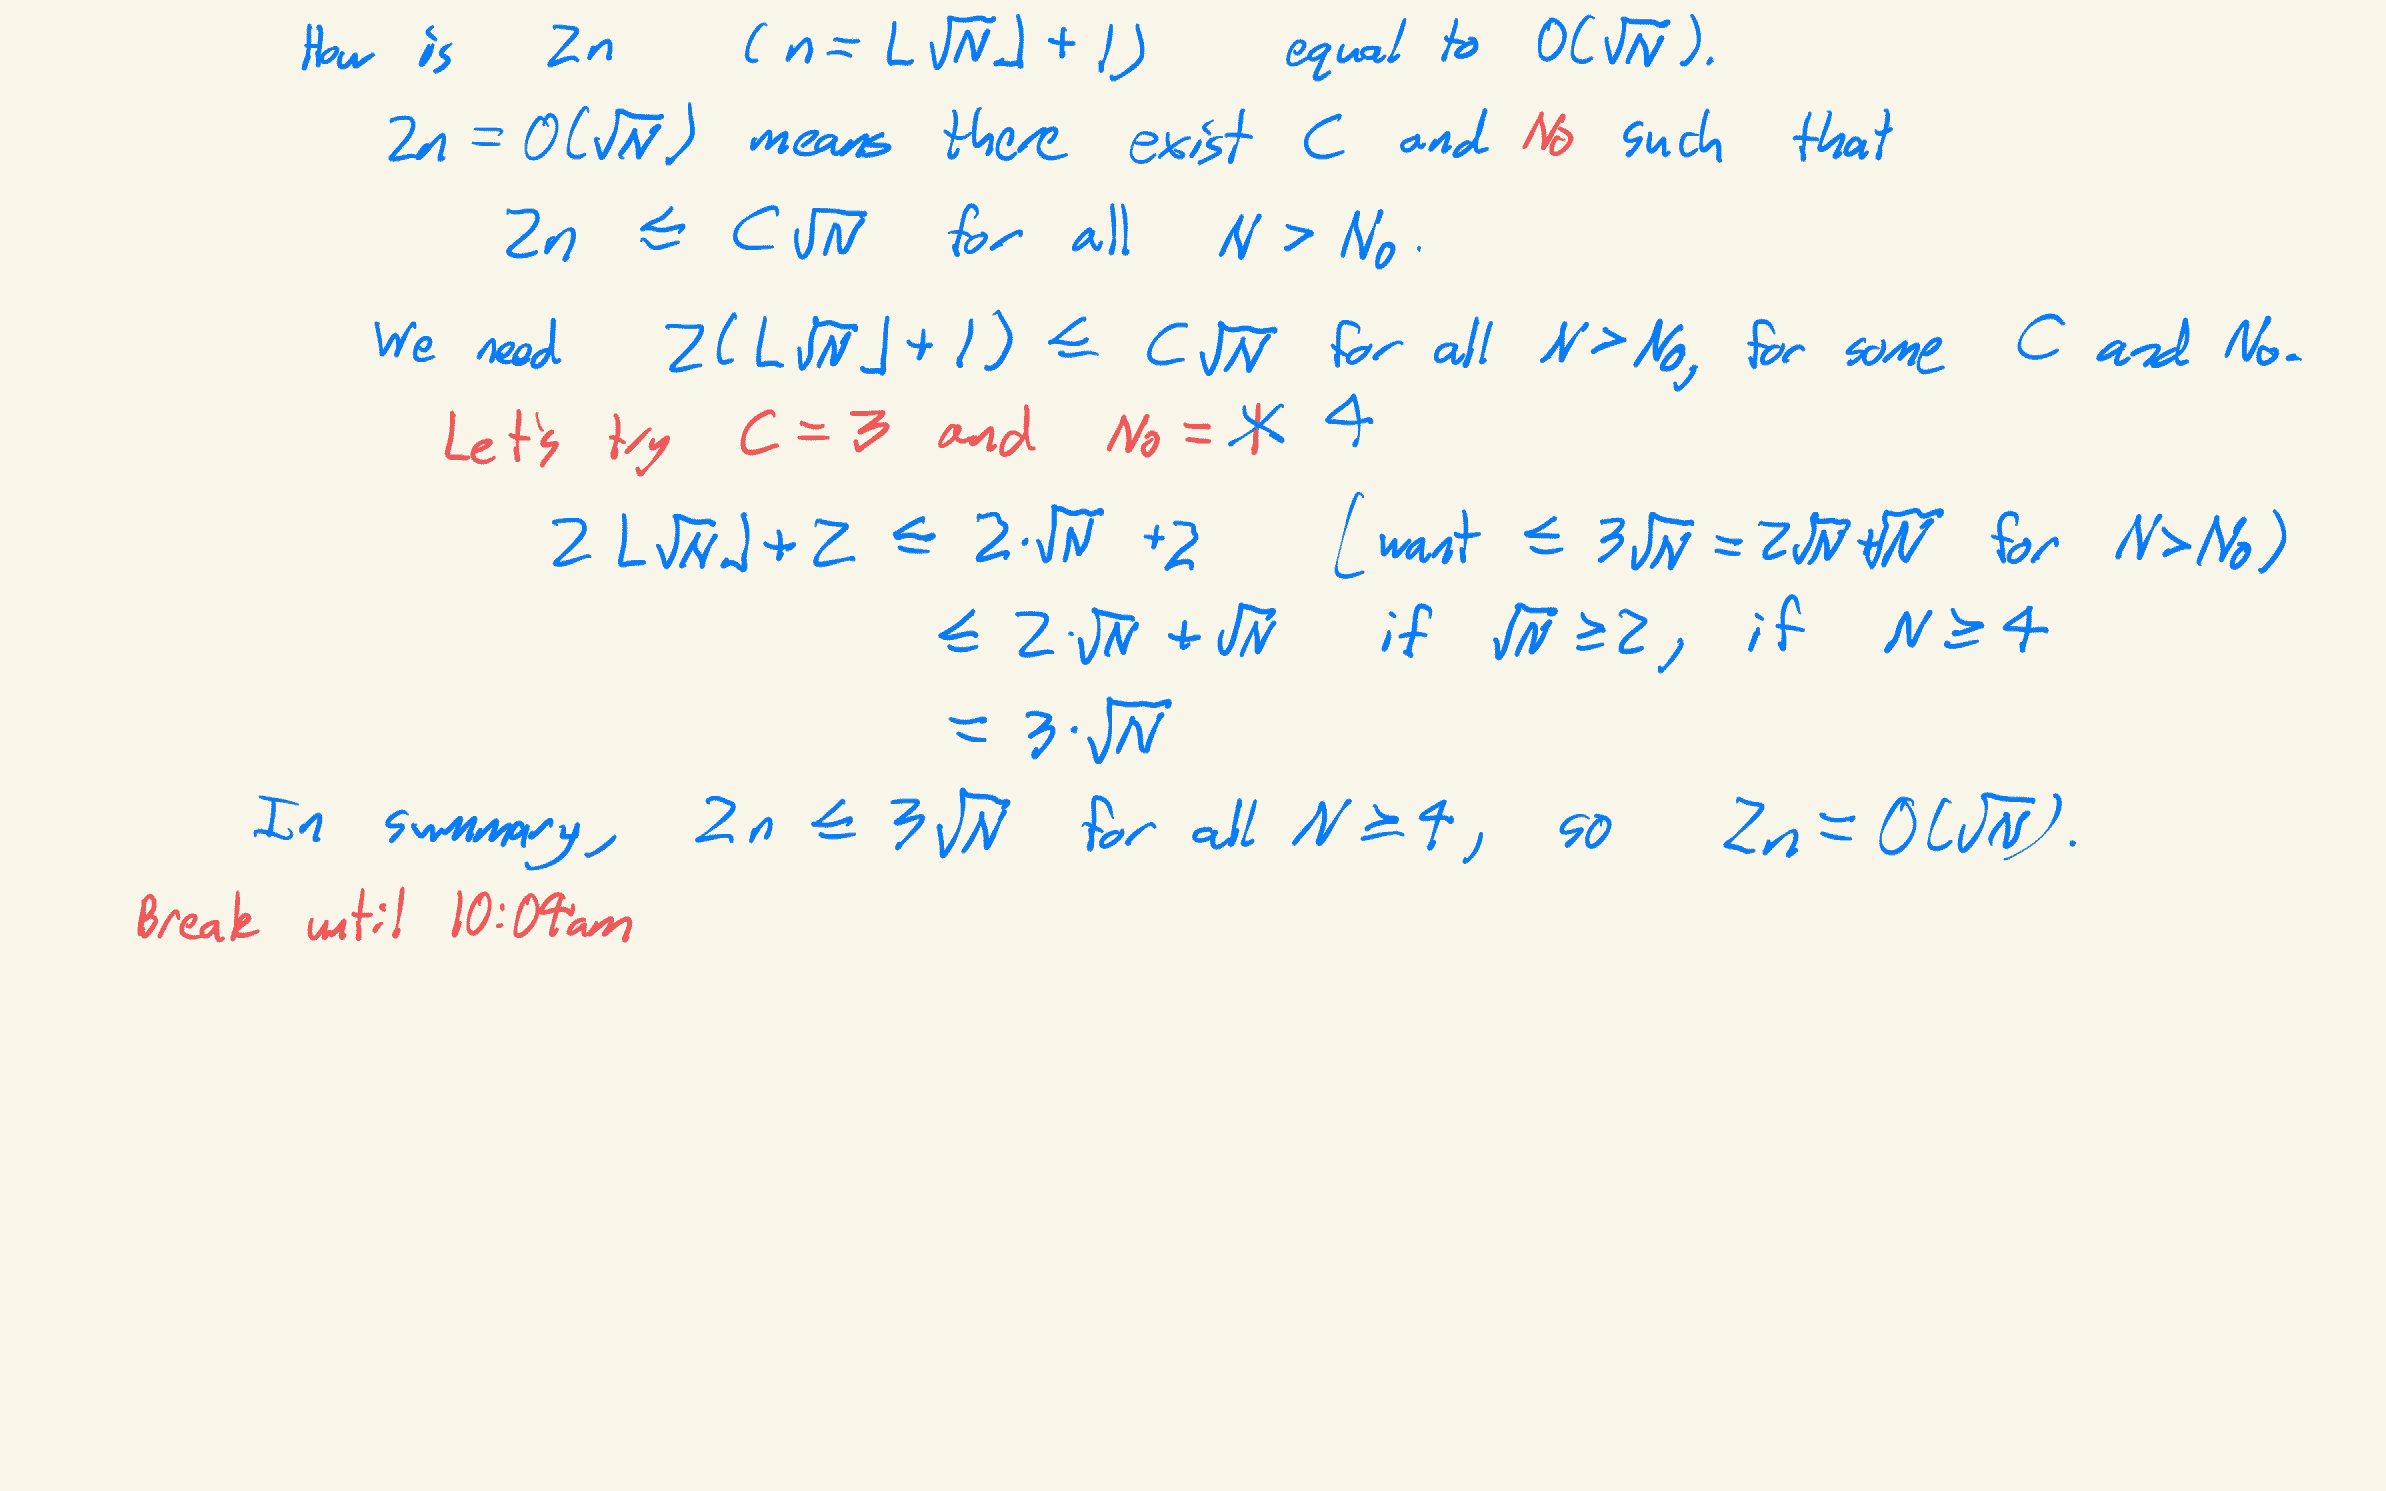 How is 2n (n = ⌊√N⌋ + 1) equal to O(√N).
2n = O(√N) means there exist C and N₀ such that
2n ≤ C√N for all N > N₀.
We need 2(⌊√N⌋ + 1) ≤ C√N for all N > N₀, for some C and N₀.
Let's try C = 3 and N₀ = 4
2⌊√N⌋ + 2 ≤ 2·√N + 2 (want ≤ 3√N = 2√N + √N for N > N₀)
≤ 2·√N + √N if √N ≥ 2, if N ≥ 4
= 3·√N
In summary, 2n ≤ 3√N for all N ≥ 4, so 2n = O(√N).
Break until 10:04am